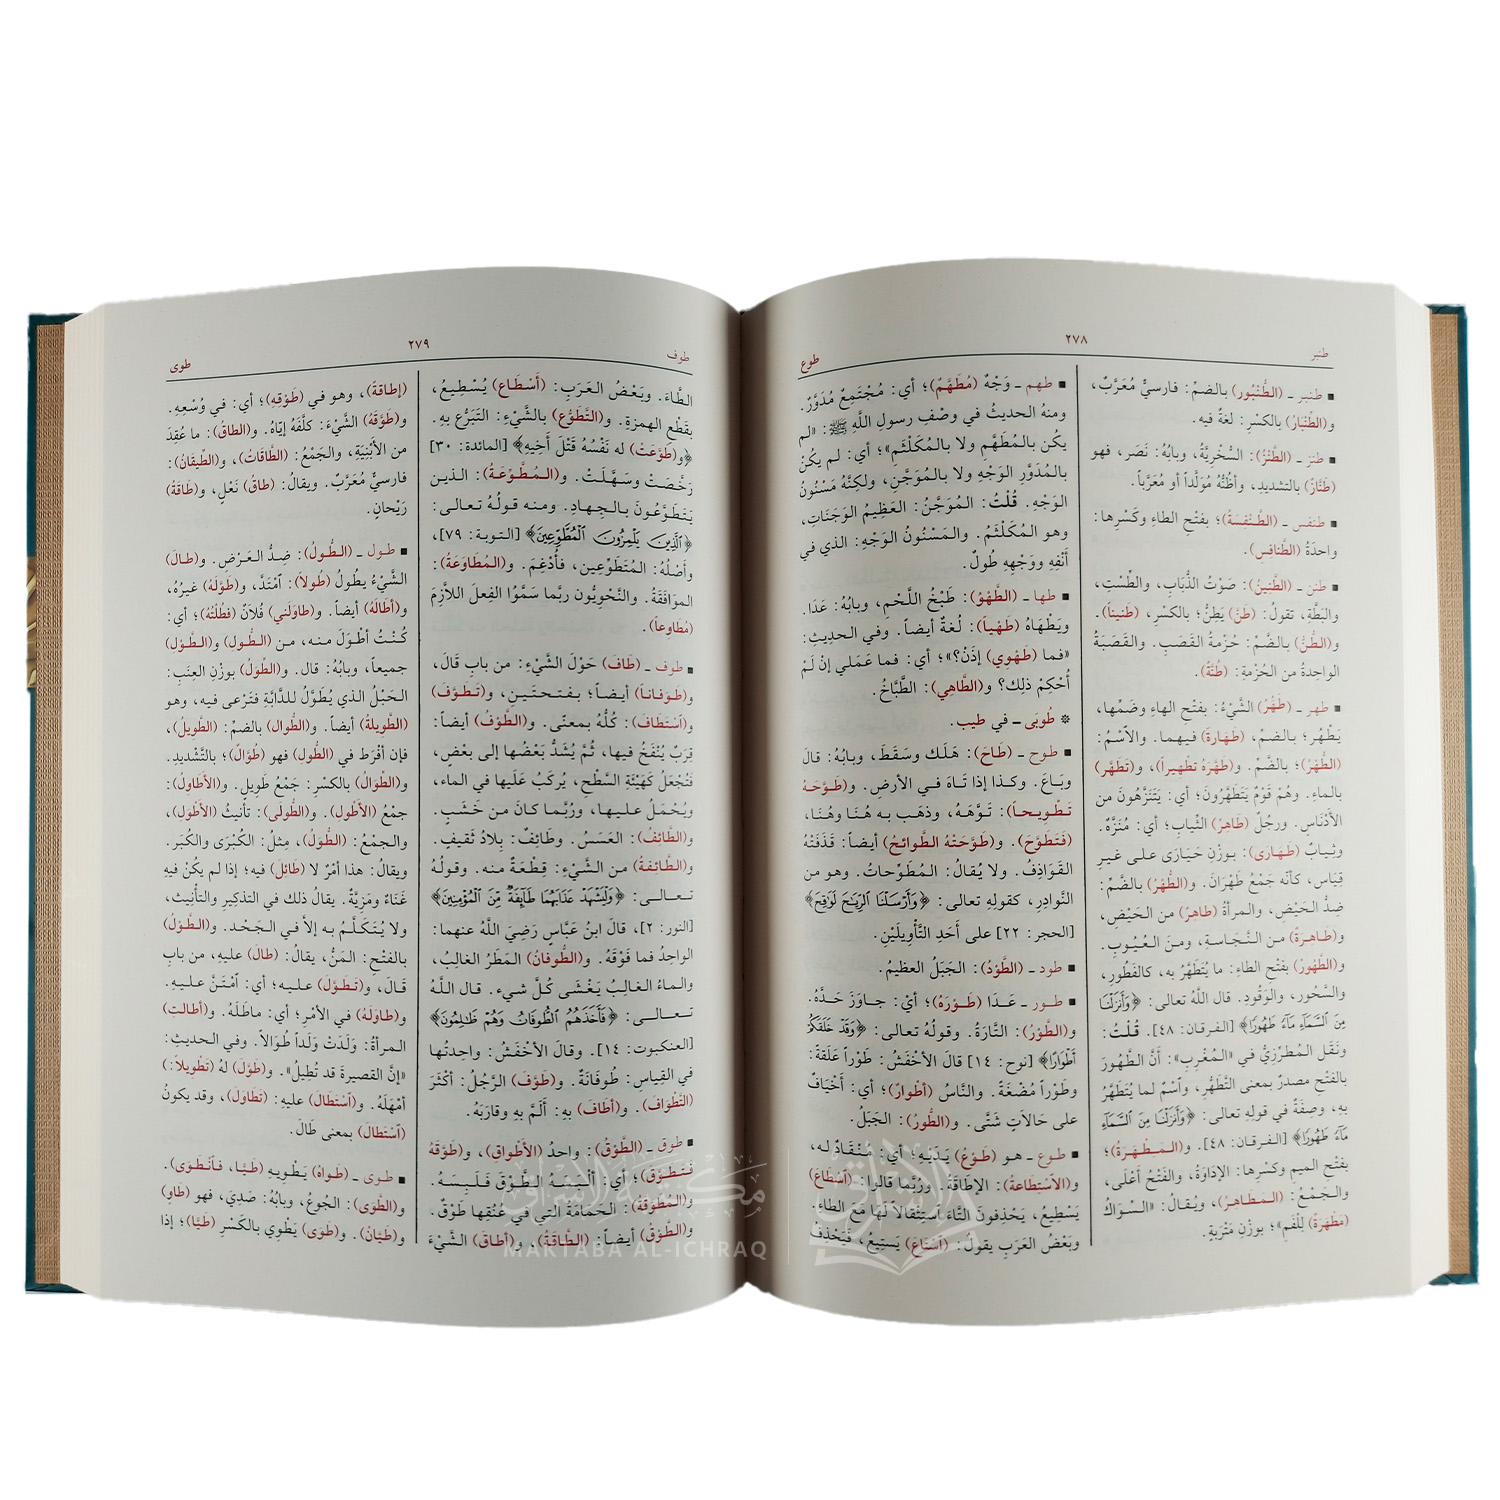 طنبر
٢٧٨
طوع
■ طنبر ـ (الطُّنْبُور) بالضمّ: فارسيٌّ مُعَرَّبٌ،
و(الطِّنْبَارُ) بالكسْرِ: لغةٌ فيه.
■ طنز ـ (الطَّنْزُ): السُّخْرِيَّةُ، وبابُهُ: نَصَر، فهو
(طَنَّازٌ) بالتشديدِ، وأظُنُّهُ مُوَلَّداً أو مُعَرَّباً.
■ طنفس ـ (الطَّنْفَسَةُ)؛ بفتْحِ الطاءِ وكَسْرِها:
واحدةُ (الطَّنافِسِ).
■ طنن ـ (الطَّنِينُ): صَوْتُ الذُّبَابِ، والطَّسْتِ،
والبَطَّةِ، تقولُ: (طَنَّ) يَطِنُّ؛ بالكسْرِ، (طَنيناً).
و(الطُّنُّ) بالضَّمِّ: حُزْمةُ القَصَبِ. والقَصَبَةُ
الواحدةُ من الحُزْمةِ: (طُنَّةٌ).
■ طهر ـ (طَهُرَ) الشَّيْءُ: بفتحِ الهاءِ وضَمِّها،
يَطْهُر؛ بالضمِّ، (طَهَارةً) فيهما. والاسْمُ:
(الطُّهْرُ)؛ بالضَّمِّ. و(طَهَّرَهُ تطْهيراً)، و(تَطَهَّر)
بالماءِ. وهُمْ قَوْمٌ يَتَطَهَّرُونَ؛ أي: يَتَنَزَّهُونَ من
الأدْنَاسِ. ورجُلٌ (طَاهِرُ) الثِّيابِ؛ أي: مُنَزَّهٌ.
وثِيابٌ (طَهَارى): بوزْنِ حَيَارَى على غيرِ
قِيَاس، كأنّه جَمْعُ طَهْرَانَ. و(الطُّهْرُ) بالضَّمِّ:
ضِدُّ الحَيْضِ، والمرأةُ (طاهِرٌ) من الحَيْضِ،
و(طاهِرةٌ) من النَّجَاسةِ، ومنَ العُيُوبِ.
و(الطَّهُورُ) بفتحِ الطاءِ: ما يُتَطَهَّرُ به، كالفَطُورِ،
والسَّحُورِ، والوَقُودِ. قال اللَّهُ تعالى: ﴿وَأَنزَلْنَا
مِنَ السَّمَآءِ مَآءً طَهُورًا﴾ [الفرقان: ٤٨]. قُلْتُ:
ونَقَل المُطَرِّزيُّ في «المُغْرِبِ»: أنَّ الطَّهُورَ
بالفتحِ مصدرٌ بمعنى التَّطَهُّرِ، واسْمٌ لما يُتَطَهَّرُ
بهِ، وصِفَةٌ في قولِهِ تعالى: ﴿وَأَنزَلْنَا مِنَ السَّمَآءِ
مَآءً طَهُورًا﴾ [الفرقان: ٤٨]. و(المَطْهَرةُ)؛
بفتحِ الميمِ وكسرِها: الإدَاوةُ، والفَتْحُ أعْلَى،
والجَمْعُ: (المَطاهِرُ)، ويُقالُ: «السِّوَاكُ
(مَطْهَرةٌ) لِلْفَمِ»؛ بوزْنِ مَتْرَبَةٍ.
■ طهم ـ وَجْهٌ (مُطَهَّمٌ)؛ أي: مُجْتَمِعٌ مُدَوَّرٌ.
ومنهُ الحديثُ في وصْفِ رسولِ اللَّهِ ﷺ: «لم
يكُن بالمُطَهَّمِ ولا بالمُكَلْثَمِ»؛ أي: لم يكُنْ
بالمُدَوَّرِ الوَجْهِ ولا بالمُوَجَّنِ، ولكنَّهُ مَسْنُونُ
الوَجْهِ. قُلْتُ: المُوَجَّنُ: العَظِيمُ الوَجَنَاتِ،
وهو المُكَلْثَمُ. والمَسْنُونُ الوَجْهِ: الذي في
أنْفِهِ ووَجْهِهِ طُولٌ.
■ طها ـ (الطَّهْوُ): طَبْخُ اللَّحْمِ، وبابُهُ: عَدَا.
ويَطْهَاهُ (طَهْياً): لُغةٌ أيضاً. وفي الحديثِ:
«فما (طَهْوِي) إذَنْ؟»؛ أي: فما عَمَلي إنْ لَمْ
أُحْكِمْ ذلك؟ و(الطَّاهِي): الطَّبَّاخُ.
* طُوبَى ـ في طيب.
■ طوح ـ (طَاحَ): هَلَك وسَقَطَ، وبابُهُ: قالَ
وبَاعَ. وكذا إذا تَاهَ في الأرضِ. و(طَوَّحَهُ
تَطْويحاً): تَوَّهَهُ، وذهَب به هُنَا وهُنَا،
(فَتَطَوَّحَ). و(طَوَّحَتْهُ الطَّوائحُ) أيضاً: قَذَفَتْهُ
القَوَاذِفُ. ولا يُقالُ: المُطَوِّحاتُ. وهو من
النَّوادِرِ، كقولِهِ تعالى: ﴿وَأَرْسَلْنَا الرِّيَاحَ لَوَاقِحَ﴾
[الحجر: ٢٢] على أحَدِ التَّأْوِيلَيْنِ.
■ طود ـ (الطَّوْدُ): الجَبَلُ العظيمُ.
■ طور ـ عَدَا (طَوْرَهُ)؛ أيْ: جاوَزَ حَدَّهُ.
و(الطَّوْرُ): التَّارَةُ. وقولُهُ تعالى: ﴿وَقَدْ خَلَقَكُمْ
أَطْوَارًا﴾ [نوح: ١٤] قالَ الأخْفَشُ: طَوْراً عَلَقَةً،
وطَوْراً مُضْغَةً. والناسُ (أطْوارٌ)؛ أي: أخْيَافٌ
على حَالاَتٍ شَتَّى. و(الطُّورُ): الجَبَلُ.
■ طوع ـ هو (طَوْعُ) يَدَيْهِ؛ أي: مُنْقَادٌ له،
و(الاسْتِطاعةُ): الإطَاقَةُ. ورُبَّما قالوا: (اسْطَاعَ)
يَسْطِيعُ، يَحْذِفونَ التَّاءَ اسْتِثْقَالاً لَهَا مَعَ الطاءِ.
وبَعْضُ العَرَبِ يقولُ: (اسْتَاعَ) يَسْتِيعُ، فَيَحْذِفُ
طوف
٢٧٩
طوى
الطَّاءَ. وبَعْضُ العَرَبِ: (أَسْطَاع) يُسْطِيعُ،
بقَطْعِ الهمزةِ. و(التَّطوُّعُ) بالشَّيْءِ: التَبَرُّع بهِ.
﴿و(طَوَّعَتْ) له نَفْسُهُ قَتْلَ أَخِيهِ﴾ [المائدة: ٣٠]
رَخَّصَتْ وسَهَّلَتْ. و(المُطَّوِّعَةُ): الذين
يَتَطَوَّعُونَ بالجِهادِ. ومنه قولُهُ تعالى:
﴿الَّذِينَ يَلْمِزُونَ الْمُطَّوِّعِينَ﴾ [التوبة: ٧٩]،
وأصْلُهُ: المُتَطَوِّعِين، فأُدْغِمَ. و(المُطَاوَعَةُ):
الموَافَقَةُ. والنَّحْوِيُّون ربَّما سَمَّوُا الفِعلَ اللازِمَ
(مُطاوِعاً).
■ طوف ـ (طَاف) حَوْلَ الشَّيْءِ: من بابِ قَالَ،
و(طَوَفاناً) أيضاً؛ بفتحتينِ، و(تَطَوَّفَ)
و(اسْتَطَافَ): كُلُّهُ بمعنًى. و(الطَّوْفُ) أيضاً:
قِرَبٌ يُنْفَخُ فيها، ثُمَّ يُشَدُّ بَعْضُها إلى بعْضٍ،
فتُجْعَلُ كهَيْئَةِ السَّطْحِ، يُركَبُ عَلَيها في الماء،
ويُحْمَلُ عليها، ورُبَّما كانَ من خَشَبٍ.
و(الطائفُ): العَسَسُ. وطَائِفٌ: بِلادُ ثَقيفٍ.
و(الطَّائِفةُ) من الشَّيْءِ: قِطْعَةٌ منه. وقولُهُ
تعالى: ﴿وَلْيَشْهَدْ عَذَابَهُمَا طَآئِفَةٌ مِّنَ الْمُؤْمِنِينَ﴾
[النور: ٢]، قال ابنُ عَبَّاسٍ رَضِيَ اللَّهُ عنهما:
الواحِدُ فما فَوْقَهُ. و(الطُّوفانُ) المَطَرُ الغالِبُ،
والماءُ الغالِبُ يَغْشَى كُلَّ شيء. قال اللَّهُ
تعالى: ﴿فَأَخَذَهُمُ الطُّوفَانُ وَهُمْ ظَالِمُونَ﴾
[العنكبوت: ١٤]. وقالَ الأخْفَشُ: واحِدتُها
في القِياسِ: طُوفَانَةٌ. و(طَوَّفَ) الرَّجُلُ: أكْثَرَ
(التَّطْوَافَ). و(أطَافَ) بهِ: أَلَمَّ بهِ وقارَبَهُ.
■ طوق ـ (الطَّوْقُ): واحدُ (الأَطْواقِ)، و(طَوَّقَهُ
فَتَطَوَّقَ)؛ أي: ألْبَسَهُ الطَّوْقَ فَلَبِسَهُ.
و(المُطَوَّقةُ): الحَمَامَةُ التي في عُنُقِها طَوْقٌ.
و(الطَّوْقُ) أيضاً: (الطَّاقَةُ). و(أطَاقَ) الشَّيْءَ
(إطَاقةً)، وهو في (طَوْقِهِ)؛ أي: في وُسْعِهِ.
و(طَوَّقَهُ) الشَّيْءَ: كَلَّفَهُ إيَّاهُ. و(الطاقُ): ما عُقِدَ
من الأبْنِيَةِ، والجَمْعُ: (الطَّاقَاتُ)، و(الطِّيقانُ):
فارسيٌّ مُعَرَّبٌ. ويقالُ: (طاقُ) نَعْلٍ، و(طَاقَةُ)
رَيْحانٍ.
■ طول ـ (الطُّولُ): ضِدُّ العَرْضِ. و(طالَ)
الشَّيْءُ يطُولُ (طُولاً): امْتَدَّ، و(طَوَّلَهُ) غيرُهُ،
و(أطَالَهُ) أيضاً. و(طاوَلَني) فُلانٌ (فَطُلْتُهُ)؛ أي:
كُنْتُ أطْوَلَ منه، من (الطُّولِ) و(الطَّوْلِ)
جميعاً، وبابُهُ: قال. و(الطِّوَلُ) بوزْنِ العِنَبِ:
الحَبْلُ الذي يُطَوَّلُ للدَّابَّةِ فَتَرْعى فيه، وهو
(الطَّوِيلَةُ) أيضاً. و(الطُّوالُ) بالضمِّ: الطَّوِيلُ،
فإن أفْرَط في (الطُّولِ) فهو (طُوَّالٌ)؛ بالتَّشْديدِ.
و(الطِّوَالُ) بالكسْرِ: جَمْعُ طَويل. و(الأطَاوِلُ):
جمْعُ (الأطْوَلِ). و(الطُّولَى): تأنيثُ (الأطْوَلِ)،
والجمْعُ: (الطُّوَلُ)، مِثلُ: الكُبْرَى والكُبَر.
ويقالُ: هذا أمْرٌ لا (طَائلَ) فيه؛ إذا لم يكُنْ فيهِ
غَنَاءٌ ومَزِيَّةٌ. يقالُ ذلك في التذكيرِ والتأنيثِ،
ولا يُتَكَلَّمُ به إلاّ في الجَحْد. و(الطَّوْلُ)
بالفَتْحِ: المَنُّ، يقالُ: (طالَ) عليهِ، من بابِ
قَالَ، و(تَطَوَّلَ) عليه؛ أي: امْتَنَّ عليهِ.
و(طاوَلَهُ) في الأمْرِ؛ أي: ماطَلَهُ. و(أطَالت)
المرأةُ: وَلَدَتْ وَلَداً طُوَالاً. وفي الحديثِ:
«إنَّ القَصيرةَ قد تُطِيلُ». و(طَوَّلَ) لهُ (تَطْويلاً):
أمْهَلَهُ. و(اسْتَطَالَ) عليهِ: (تَطاوَلَ)، وقد يكونُ
(اسْتَطالَ) بمعنى طَالَ.
■ طوى ـ (طَواهُ) يَطْوِيهِ (طَيًّا، فانْطَوَى).
و(الطَّوَى): الجُوعُ، وبابُهُ: صَدِيَ، فهو (طَاوٍ)
و(طَيَّانُ). و(طَوَى) يَطْوِي بالكَسْرِ (طَيًّا)؛ إذا
مكتبة الإشراق
MAKTABA AL-ICHRAQ
الإشراق